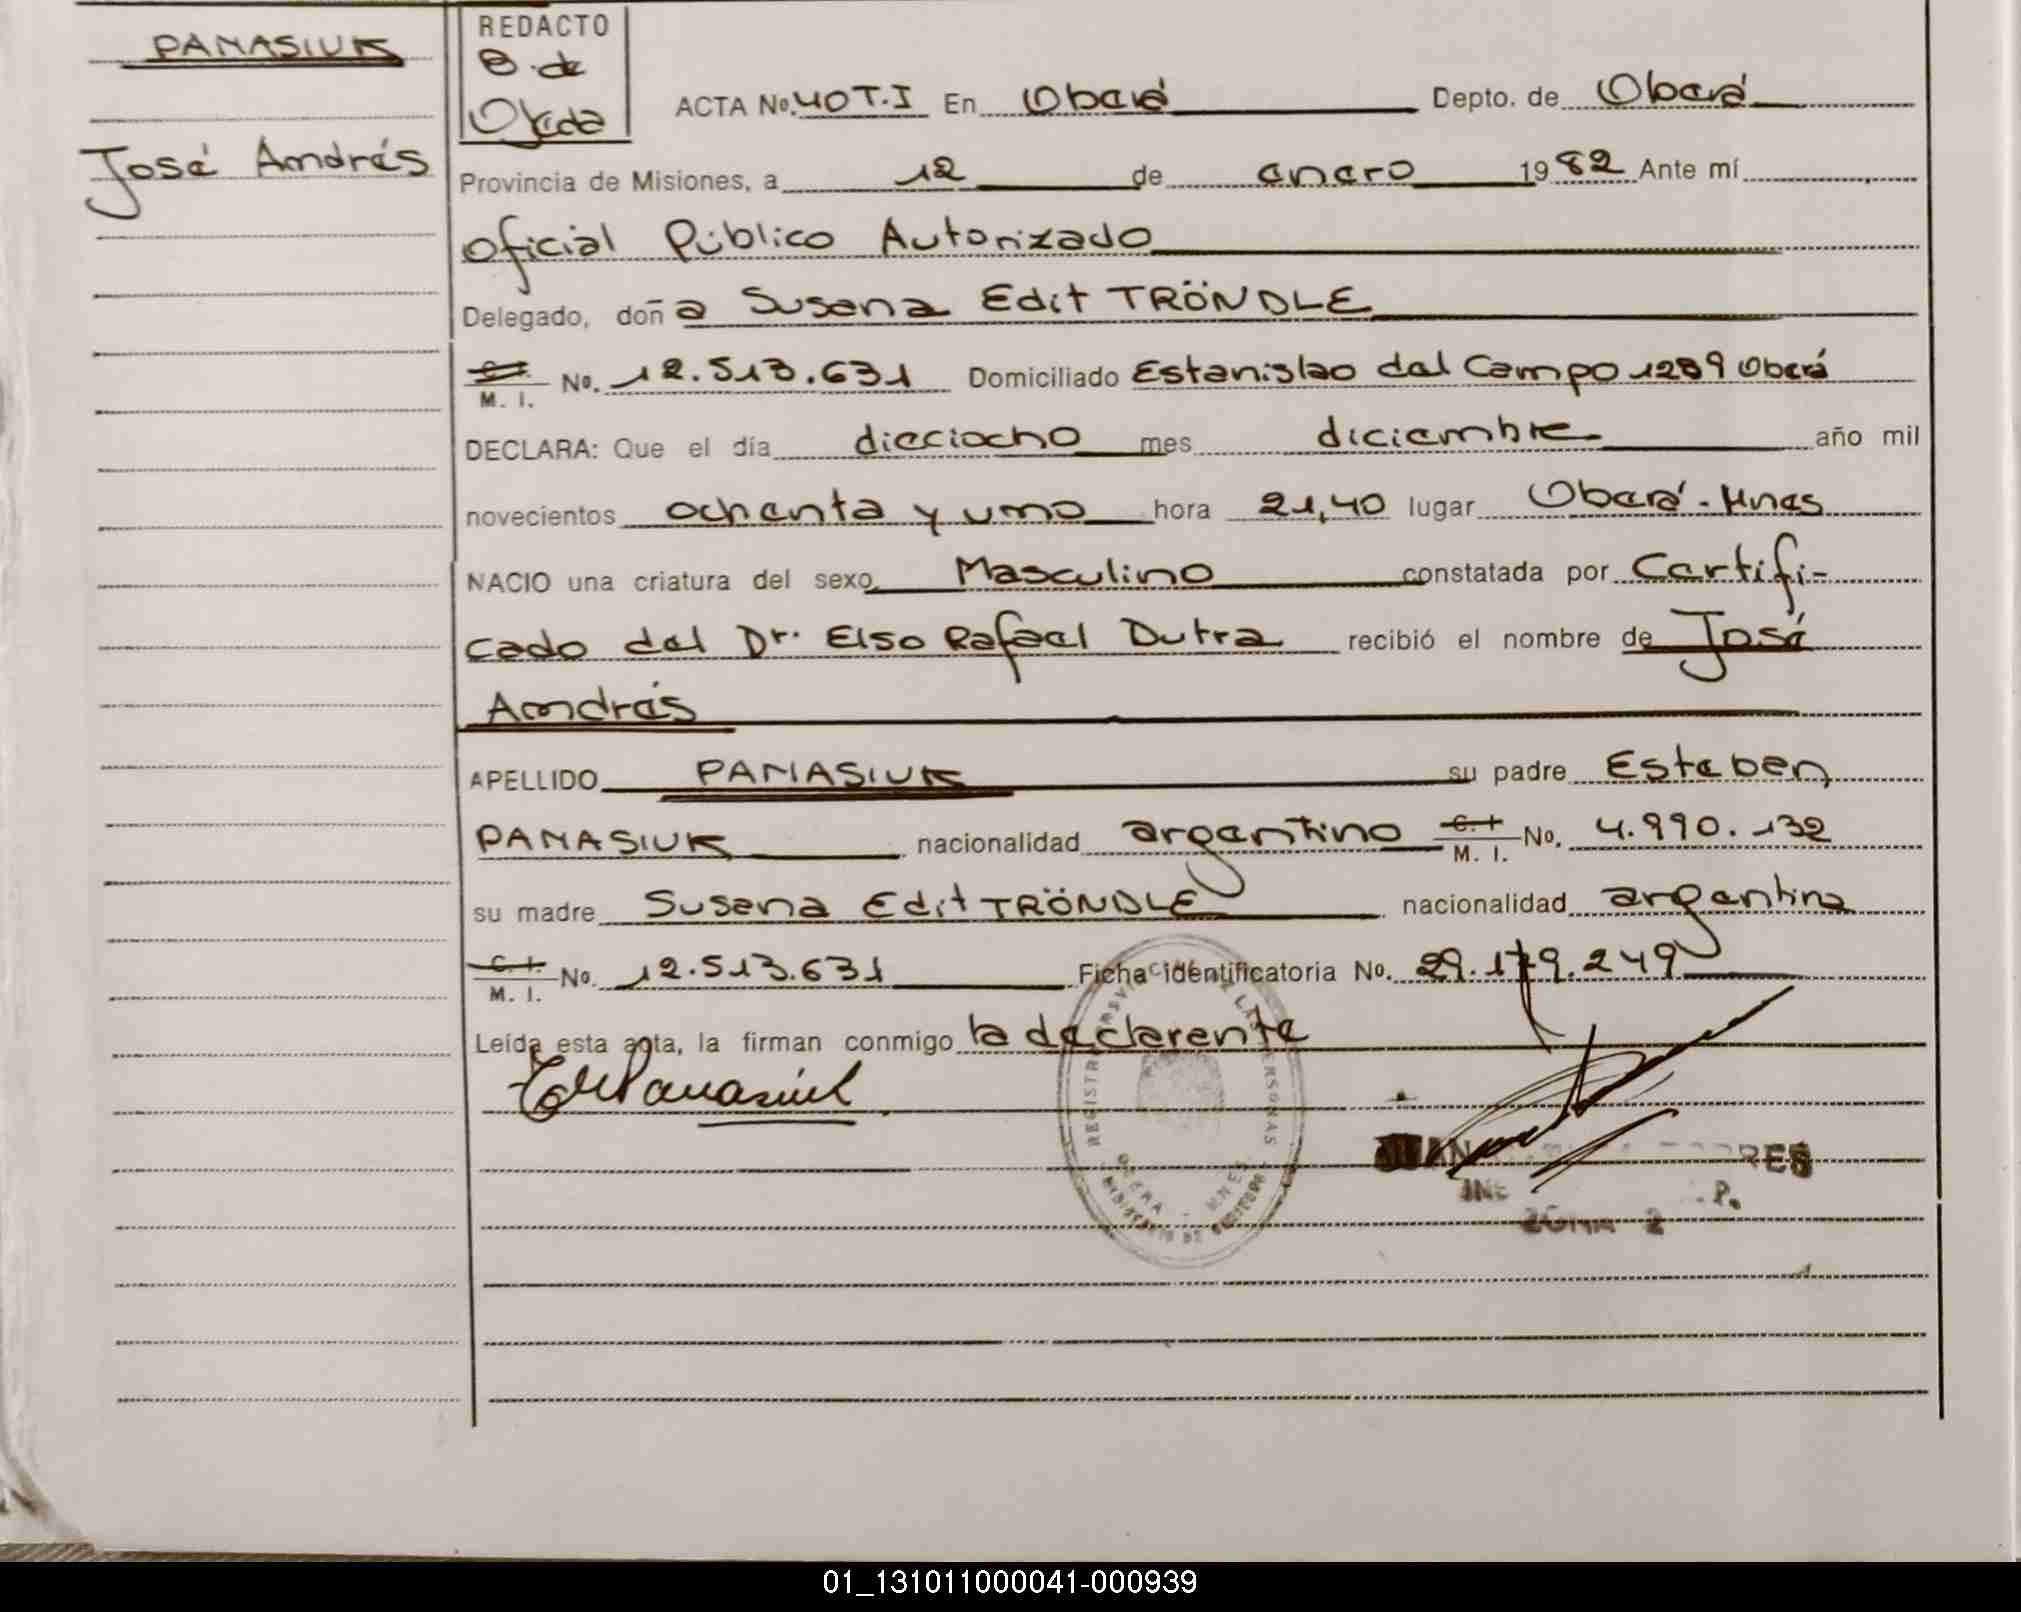 PANASIUK
José Andrés
REDACTO
B. de
Ojeda
ACTA No. 40 T.I En Oberá Depto. de Oberá
Provincia de Misiones, a 12 de enero 1982 Ante mí
Oficial Público Autorizado
Delegado, doña Susana Edit TRÖNDLE
C. I. M. I. No. 12.513.631 Domiciliado Estanislao del Campo 1289 Oberá
DECLARA: Que el día dieciocho mes diciembre año mil
novecientos ochenta y uno hora 21,40 lugar Oberá - Mnes
NACIO una criatura del sexo Masculino constatada por Certifi-
cado del Dr. Elso Rafael Dutra recibió el nombre de José
Andrés
APELLIDO PANASIUK su padre Esteban
PANASIUK nacionalidad argentino C. I. M. I. No. 4.990.132
su madre Susana Edit TRÖNDLE nacionalidad argentina
C. I. M. I. No. 12.513.631 Ficha identificatoria No. 29.179.249
Leída esta acta, la firman conmigo la declarante
Panasiuk
ZONA 2
01_131011000041-000939